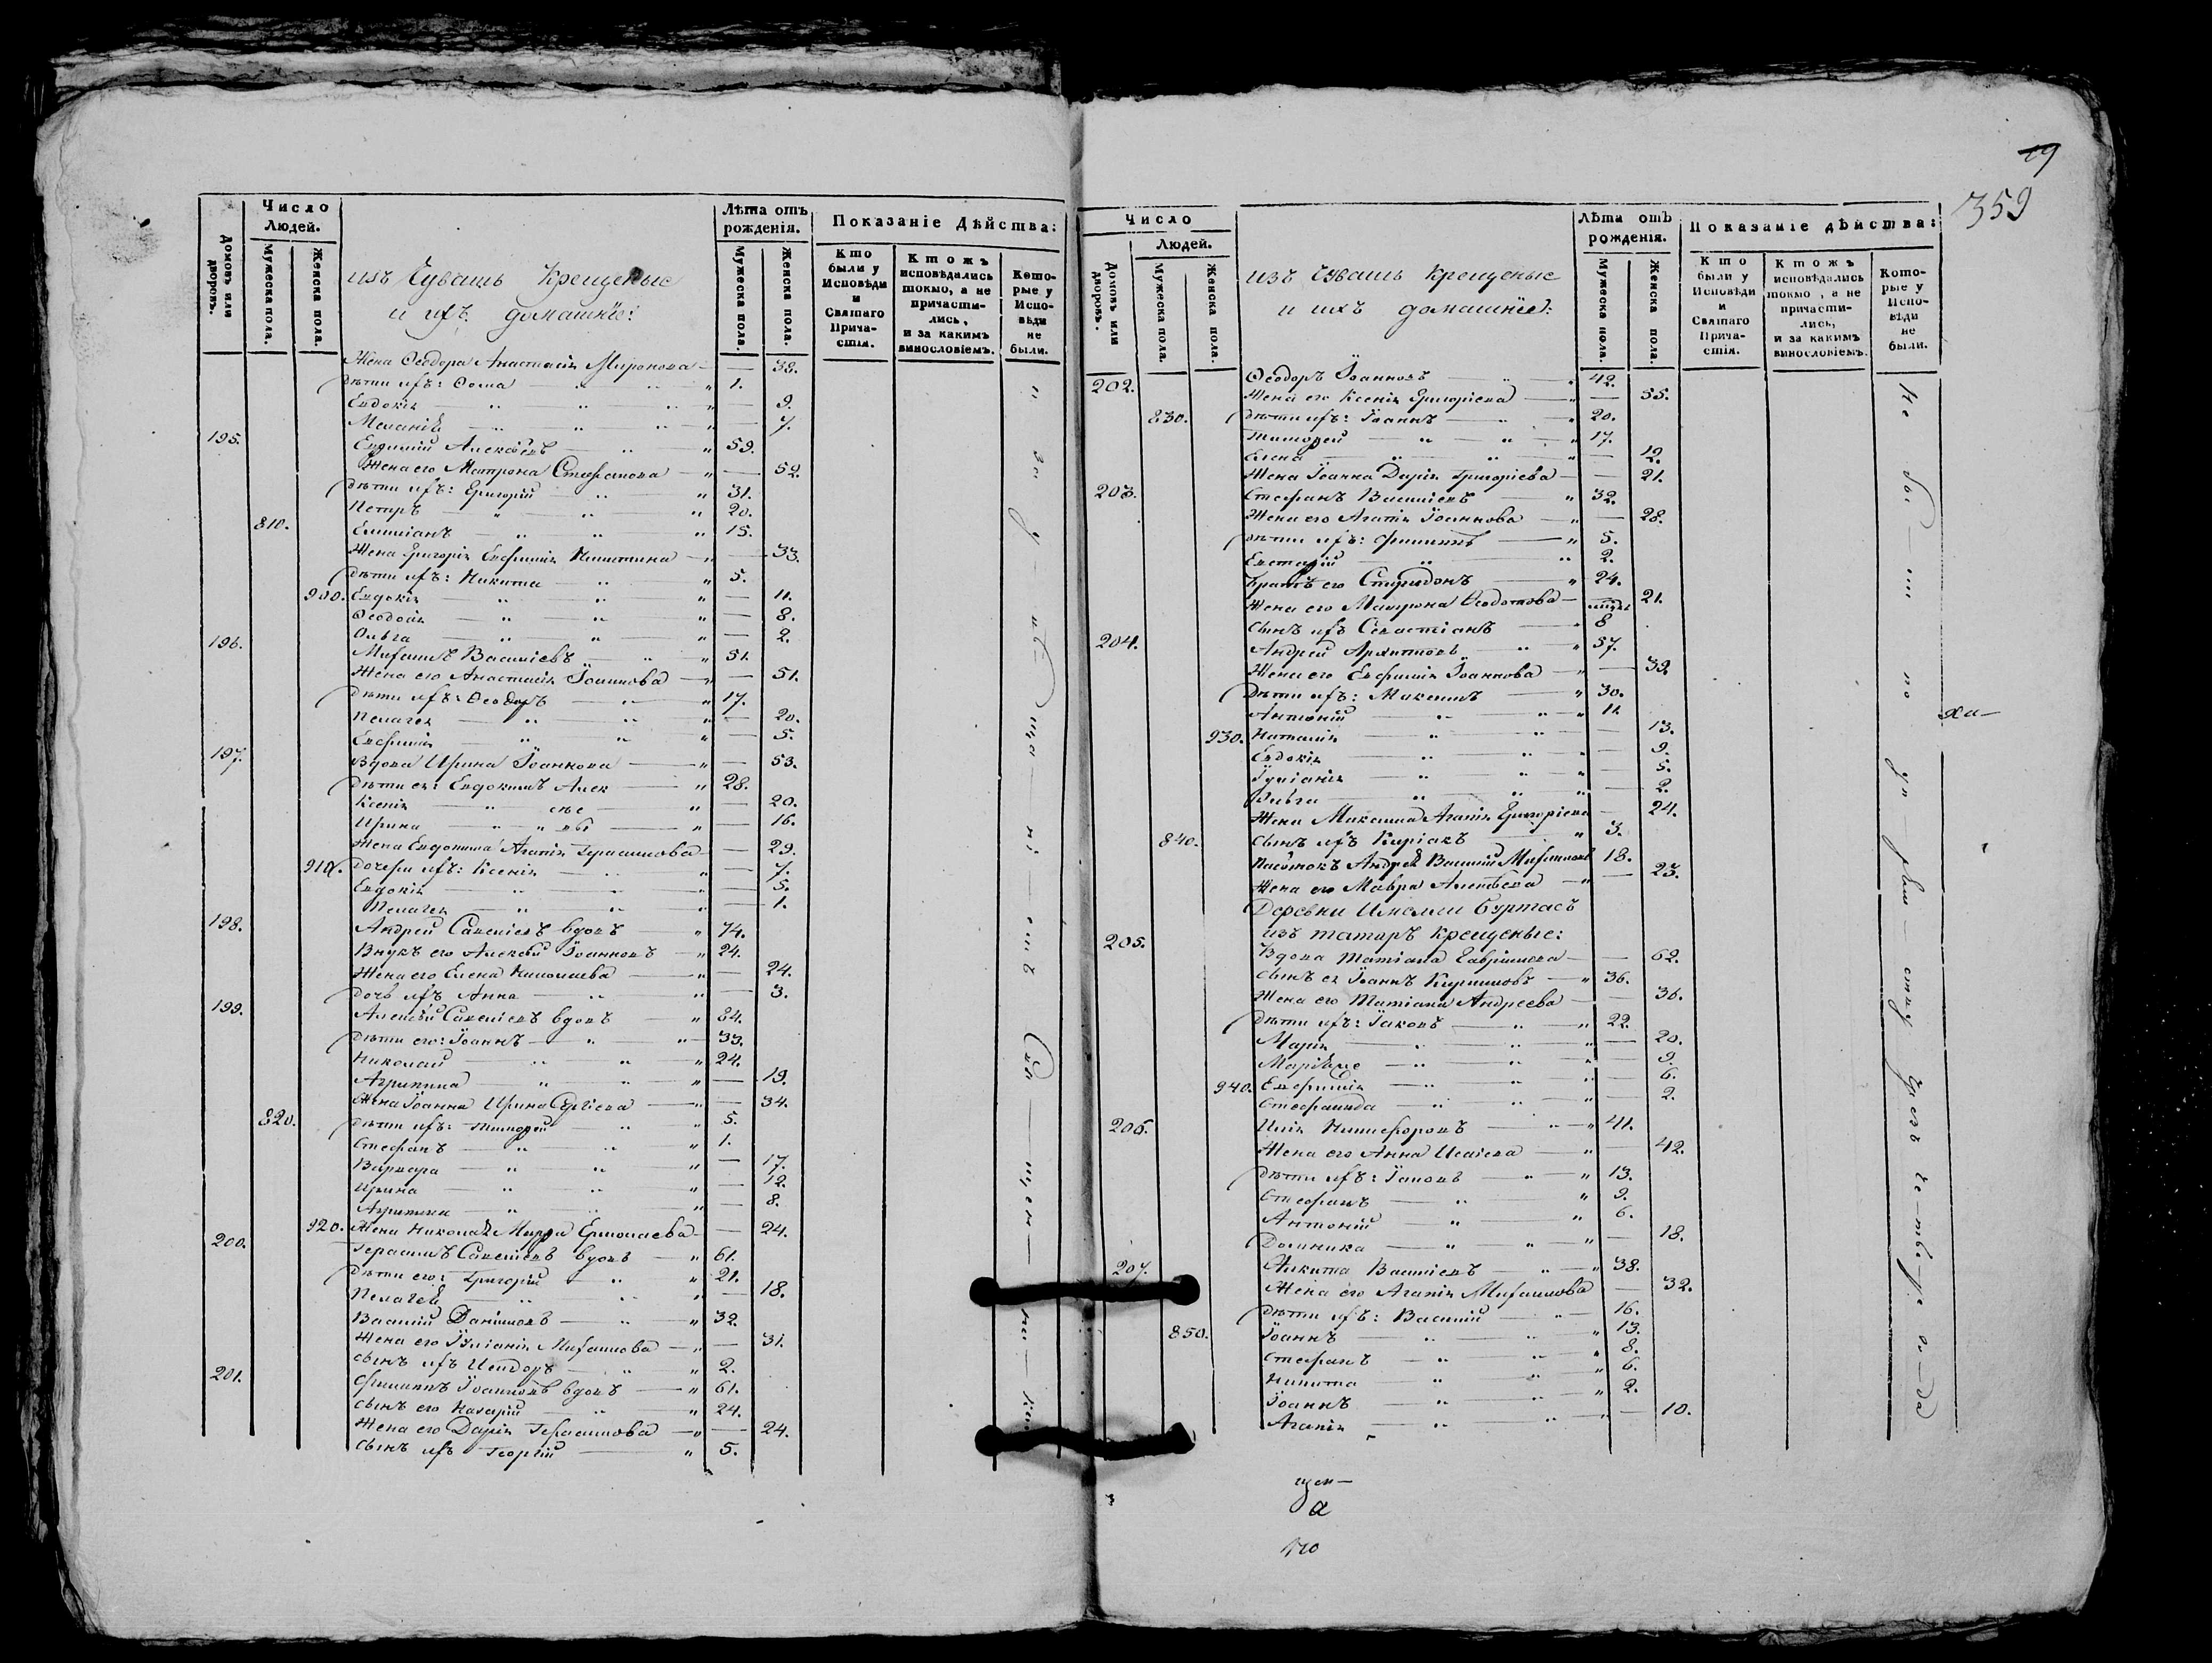 19
359
Число
Людей.
Домовъ или дворовъ.
Мужеска пола.
Женска пола.
изъ Чувашъ крещеные
и ихъ домашніе:
Лѣта отъ
рожденія.
Мужеска пола.
Женска пола.
Показаніе Дѣйства:
Кто были у Исповѣди и Святаго Прича-стія.
Ктожъ исповѣдались токмо, а не причасти-лись, и за какимъ винословіемъ.
Кото-рые у Испо-вѣди не были.
Жена Ѳеодора Анастасія Миронова — 38.
Дѣти ихъ: Ѳома 1.
Евдокія — 9.
Меланія — 7.
195. Евдокимъ Алексѣевъ 59.
Жена его Матрона Стефанова — 52.
Дѣти ихъ: Григорій 31.
Петръ 20.
810. Емиліанъ 15.
Жена Григорія Евфимія Никитина — 33.
Дѣти ихъ: Никита 5.
900. Евдокія — 11.
Ѳеодосія — 8.
Ольга — 2.
196. Михаилъ Василіевъ 51.
Жена его Анастасія Іоаннова — 51.
Дѣти ихъ: Ѳеодоръ 17.
Пелагея — 20.
Евфимія — 5.
197. Вдова Ирина Іоаннова — 53.
Дѣти ея: Евдокимъ Алек 28.
Ксенія сѣе — 20.
Ирина вы — 16.
Жена Евдокима Агапія Герасимова — 29.
910. Дочери ихъ: Ксенія — 7.
Евдокія — 5.
Пелагея — 1.
198. Андрей Савеліевъ вдовъ 74.
Внукъ его Алексѣй Іоанновъ 24.
Жена его Елена Николаева — 24.
Дочь ихъ Анна — 3.
199. Алексѣй Савеліевъ вдовъ 64.
Дѣти его: Іоаннъ 33.
Николай 24.
Агрипина — 19.
Жена Іоанна Ирина Сергіева — 34.
820. Дѣти ихъ: Тимофей 5.
Стефанъ 1.
Варвара — 17.
Ирина — 12.
Агрипина — 8.
920. Жена Николая Марѳа Ермолаева — 24.
200. Герасимъ Савеліевъ вдовъ 61.
Дѣти его: Григорій 21.
Пелагея — 18.
Василій Даніиловъ 32.
Жена его Іуліанія Михаилова — 31.
Сынъ ихъ Исидоръ 2.
201. Филиппъ Іоанновъ вдовъ 61.
Сынъ его Назарій 24.
Жена его Дарія Герасимова — 24.
Сынъ ихъ Георгій 5.
Число
Людей.
Домовъ или дворовъ.
Мужеска пола.
Женска пола.
изъ Чувашъ крещеные
и ихъ домашніе:
Лѣта отъ
рожденія.
Мужеска пола.
Женска пола.
Показаніе дѣйства:
Кто были у Исповѣди и Святаго Прича-стія.
Ктожъ исповѣдались токмо, а не причасти-лись, и за какимъ винословіемъ.
Кото-рые у Испо-вѣди не были.
202. Ѳеодоръ Іоанновъ 42.
Жена его Ксенія Григоріева — 55.
830. Дѣти ихъ: Іоаннъ 20.
Тимофей 17.
Елена — 12.
Жена Іоанна Дарія Григоріева — 21.
203. Стефанъ Василіевъ 32.
Жена его Агапія Іоаннова — 28.
Дѣти ихъ: Филиппъ 5.
Евстафій 2.
Братъ его Спиридонъ 24.
Жена его Матрона Ѳеодотова — 21.
Сынъ ихъ Севастіанъ 8
204. Андрей Архиповъ 57.
Жена его Евфимія Іоаннова — 39.
Дѣти ихъ: Максимъ 30.
Антоній 11.
930. Наталія — 13.
Евдокія — 9.
Іуліанія — 5.
Ольга — 2.
Жена Максима Агапія Григоріева — 24.
840. Сынъ ихъ Киріакъ 3.
Пасынокъ Андрея Василій Михаиловъ 18.
Жена его Мавра Алексѣева — 23.
Деревни Имелеи Буртасъ
изъ татаръ крещеные:
205. Вдова Татіана Гавріилова — 62.
Сынъ ея Іоаннъ Кирилловъ 36.
Жена его Татіана Андреева — 36.
Дѣти ихъ: Іаковъ 22.
Марія — 20.
— 9.
940. Евфимія — 6.
Стефанида — 2.
206. Илія Никифоровъ 41.
Жена его Анна Исаіева — 42.
Дѣти ихъ: Іаковъ 13.
Стефанъ 9.
Антоній 6.
Домника — 18.
207. Никита Василіевъ 38.
Жена его Агапія Михаилова — 32.
Дѣти ихъ: Василій 16.
850. Іоаннъ 13.
Стефанъ 8.
Никита 6.
Іоаннъ 2.
Агапія — 10.
Не бы-ли по
ха-
щен—
а
но